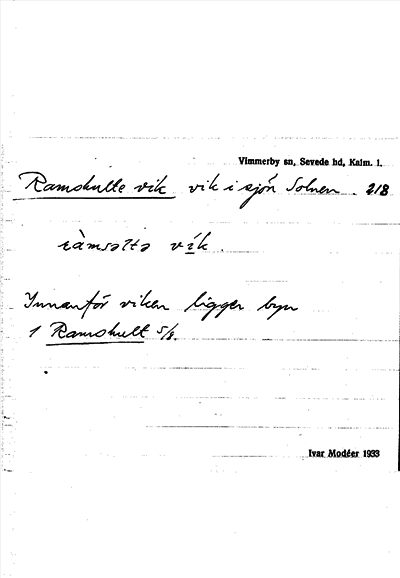 Vimmerby sn, Sevede hd, Kalm. l.
Ramshulte vik vik i sjön Solnen 218
ràmsəltə vík.
Innanför viken ligger byn
1 Ramshult 5/8.
Ivar Modéer 1933